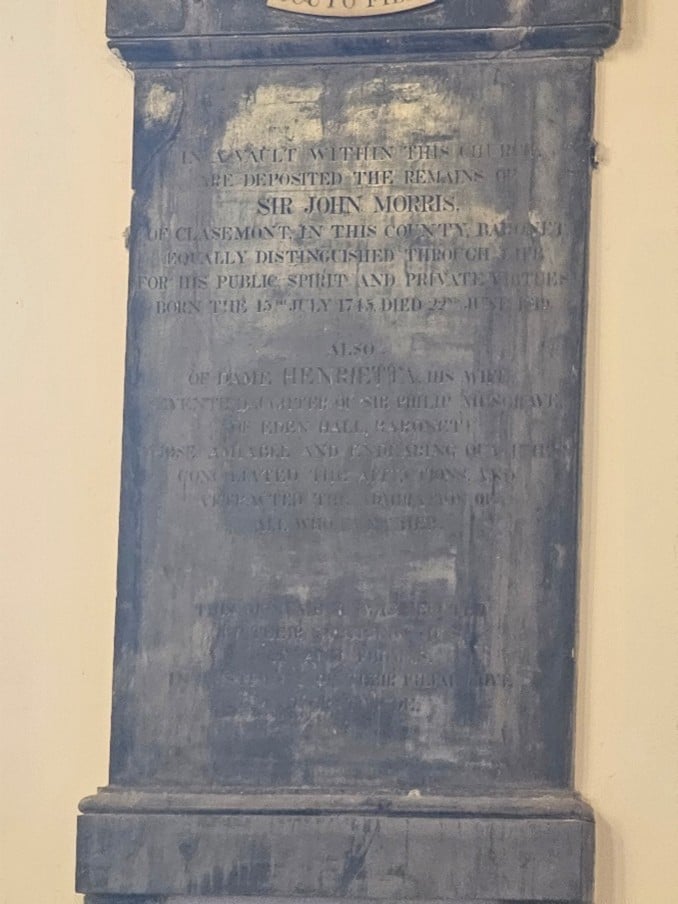 IN A VAULT WITHIN THIS CHURCH,
ARE DEPOSITED THE REMAINS OF
SIR JOHN MORRIS,
OF CLASEMONT, IN THIS COUNTY, BARONET
EQUALLY DISTINGUISHED THROUGH LIFE
FOR HIS PUBLIC SPIRIT AND PRIVATE VIRTUES
BORN THE 15TH JULY 1745, DIED 22ND JUNE 1819.
ALSO
OF DAME HENRIETTA, HIS WIFE
SEVENTH DAUGHTER OF SIR PHILIP MUSGRAVE,
OF EDEN HALL, BARONETT
WHOSE AMIABEL AND ENDEARING QUALITIES
CONCILIATED THE AFFECTIONS, AND
ATTRACTED THE ADMIRATION OF
ALL WHO KNEW HER.
THIS MONUMENT WAS ERECTED
THEIR
THEIR FILIAL LOVE,